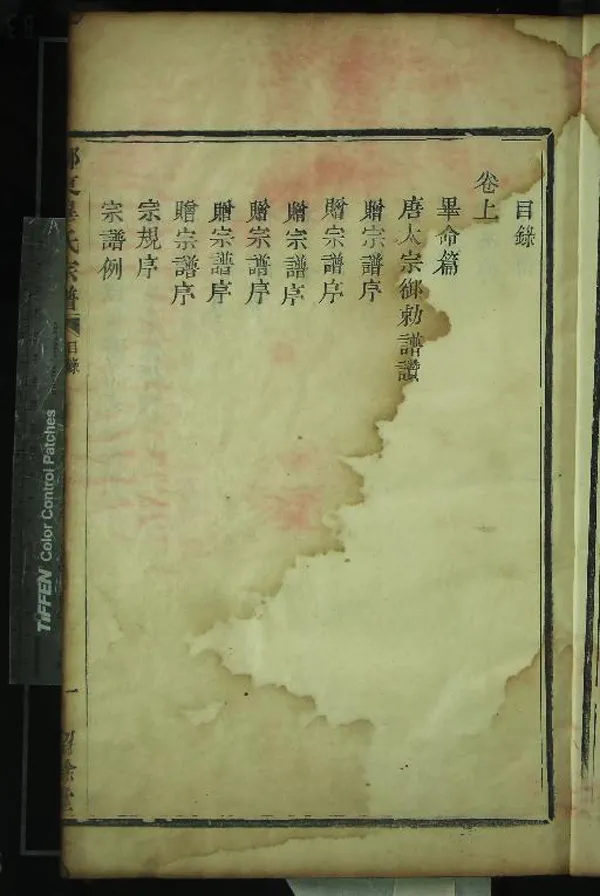 目錄
卷上
畢命篇
唐太宗御勅譜讚
贈宗譜序
贈宗譜序
贈宗譜序
贈宗譜序
贈宗譜序
贈宗譜序
宗規序
宗譜例
氏宗譜
目錄
一
TIFFEN Color Control Patches